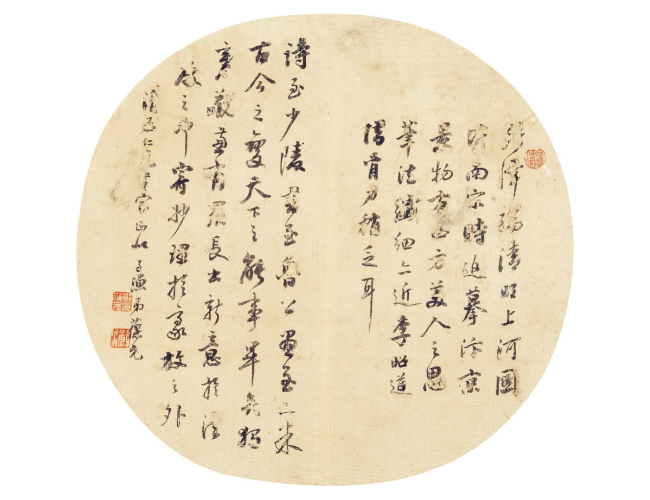 張擇端清明上河圖
皆南宋時追摹汴京
景物有西方美人之思
筆法纖細亦近李昭道
骨力稍乏耳
詩至少陵書至魯公畫至二米
古今之變天下之能事畢矣獨
彥敬兼有眾長出新意於法
度之中寄妙理於豪放之外
仁兄 家正 子漁弟